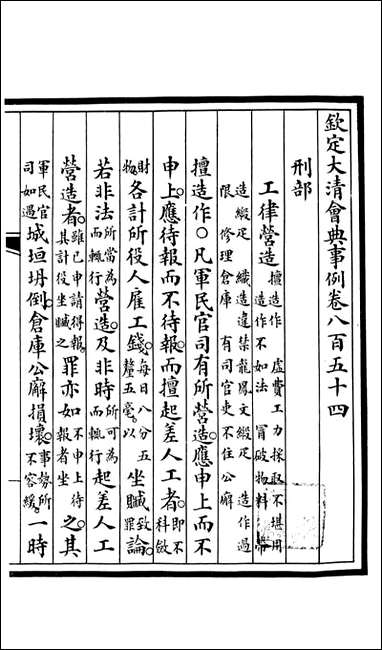 欽定大清會典事例卷八百五十四
刑部
工律營造擅造作 虛費工力採取不堪用 造作不如法 冒破物料 帶
造緞疋 織造違禁龍鳳文緞疋 造作過
限 修理倉庫 有司官吏不住公廨
擅造作○凡軍民官司有所營造應申上而不
申上應待報而不待報而擅起差人工者即不科斂
財物各計所役人雇工錢每日八分五釐五毫以坐贓致論罪
若非法所當為而輒行營造及非時所可為而輒行起差人工
營造者雖已申請得報其計役坐贓之罪亦如不申上待報者坐之其
軍民官司如遇城垣坍倒倉庫公廨損壞事勢所不容緩一時